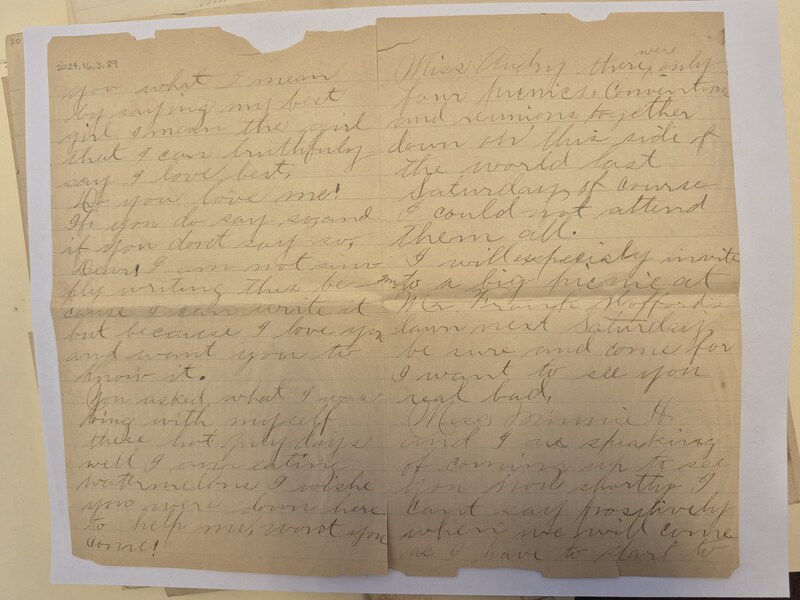 2029.16.3.89
you what I mean
by saying my best
girl I mean the girl
that I can truthfuly
say I love best.
Do you love me!
If you do say so, and
if you dont say so,
Dear! I am not sim-
ply writing this be-
cause I can write it
but because I love you
and want you to
know it.
You asked what I was
doing with myself
these hot days
well I am eating
watermelons I wishe
you were down here
to help me, wont you
come!
Miss Audry there were only
four picnics, Conventions
and reunions together
down on this side of
the world last
Saturday, of course
I could not attend
them all.
I will especialy invite
you to a big picnic at
Mr. Frank Woffords
lawn next Saturday,
be sure and come for
I want to see you
real bad,
Miss Minnie H.
and I are speaking
of coming up to see
you now shortly I
cant say positively
when we will come
as I have to start to